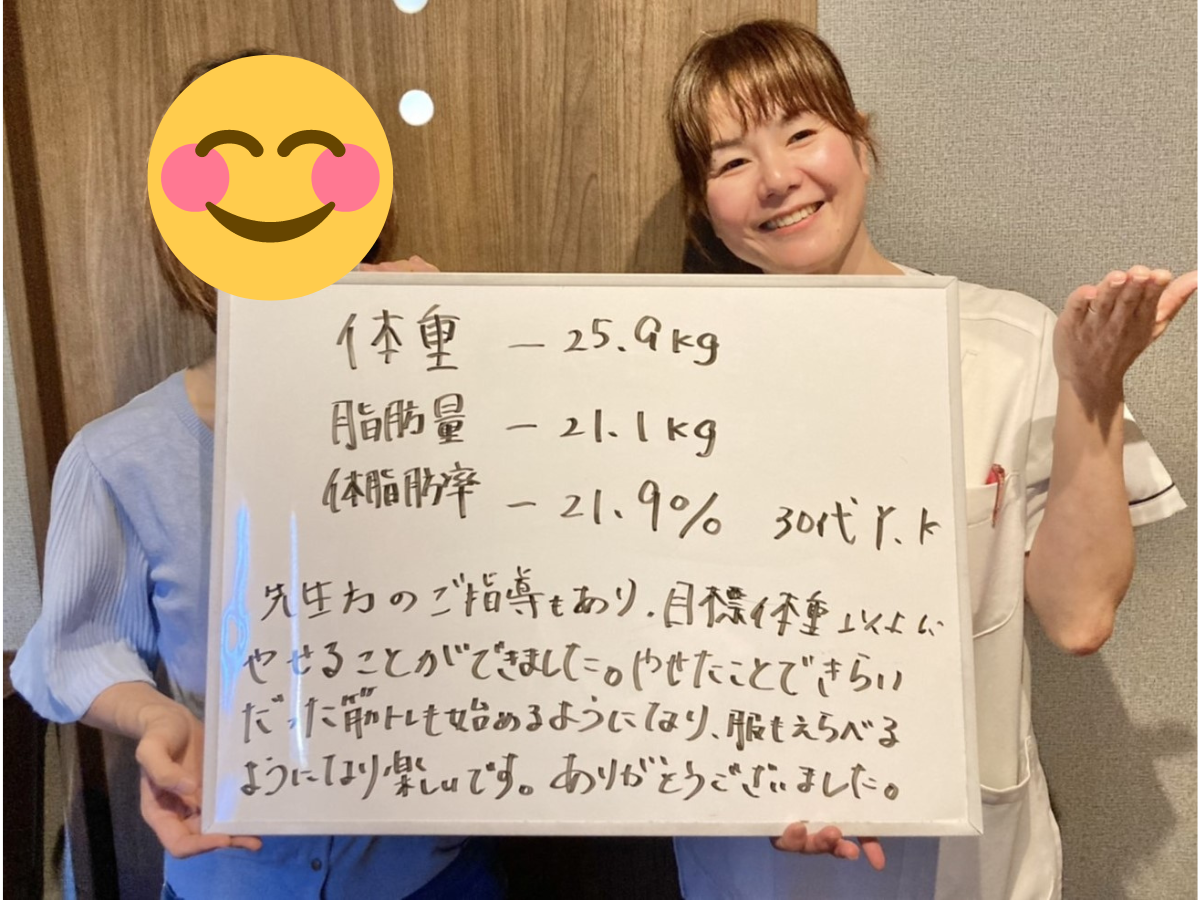 体重 - 25.9kg
脂肪量 - 21.1kg
体脂肪率 - 21.9%
30代 Y.K
先生方のご指導もあり、目標体重以上に
やせることができました。やせたことできらい
だった筋トレも始めるようになり、服もえらべる
ようになり楽しいです。ありがとうございました。